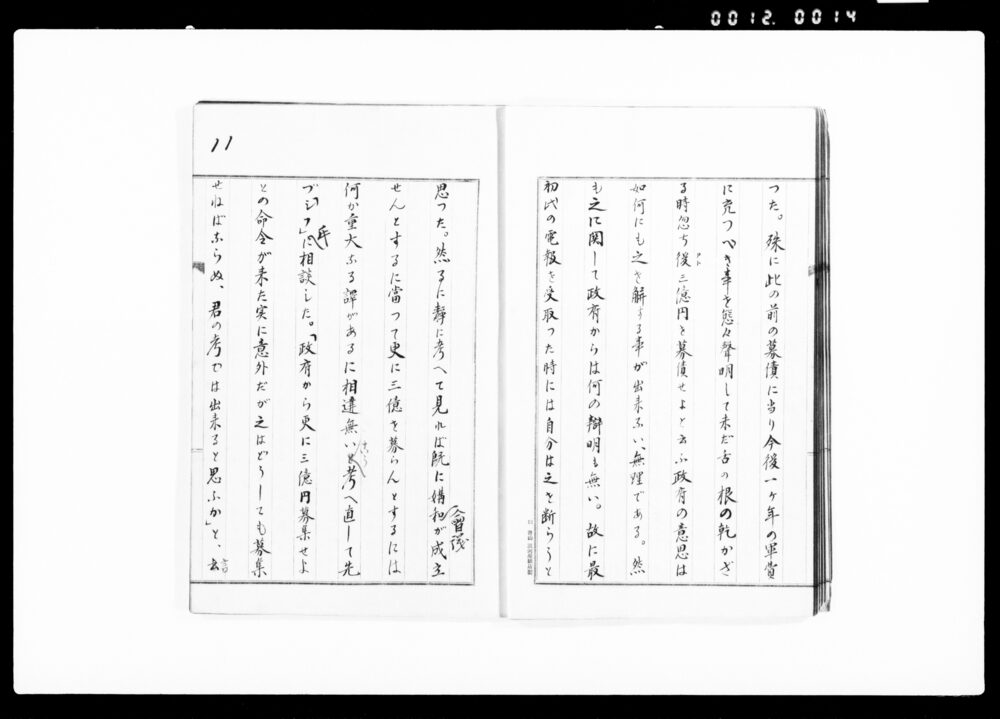 0012.0014
つた。殊に此の前の募債に当り今後一ケ年の軍費
に充つべき事を態々聲明して未だ舌の根の乾かざ
る時忽ち後三億円を募債せよと云ふ政府の意思は
如何にも之を解する事が出来ない、無理である。然
も之に関して政府からは何の辯明も無い。故に最
初此の電報を受取つた時には自分は之を断らうと
11
思つた。然るに静に考へて見れば既に媾和會議が成立
せんとするに當つて更に三億を募らんとするには
何か重大なる譯があるに相違無いと考へ直して先
づシフ氏に相談した。「政府から更に三億円募集せよ
との命令が来た実に意外だが之はどうしても募集
せねばならぬ、君の考では出来ると思ふか」と、云